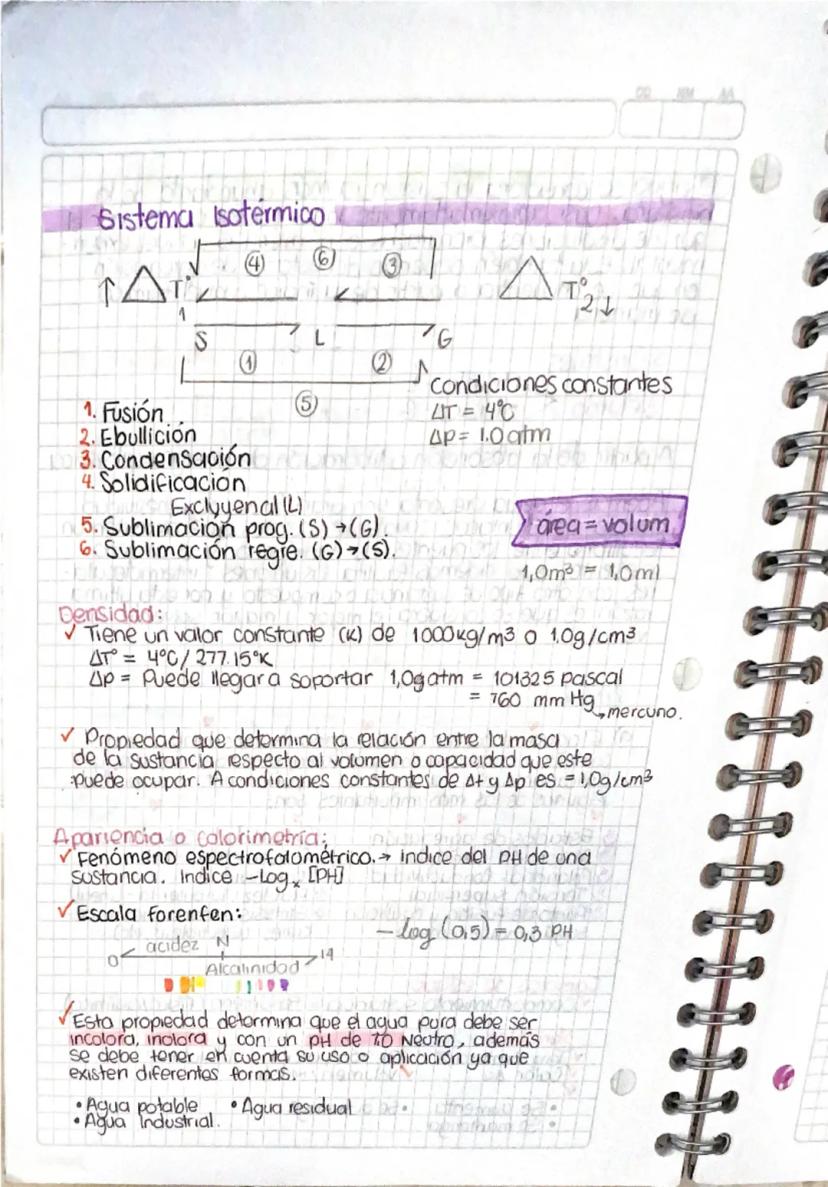 DD MM AA
Sistema Isotérmico
④ ⑥ ③
↑ △ T°1
△ T°2 ↓
S L G
① ②
⑤
Condiciones constantes
ΔT = 4°C
Δp = 1.0 atm
1. Fusión
2. Ebullición
3. Condensación
4. Solidificación
Excluyen al (L)
5. Sublimación prog. (S) → (G).
6. Sublimación regre. (G) → (S).
área = volum
1,0m³ = 1,0ml
Densidad:
✓ Tiene un valor constante (K) de 1000kg/m³ o 1.0g/cm³
ΔT° = 4°C / 277.15°K
Δp = Puede llegar a soportar 1,0g atm = 101325 pascal
= 760 mm Hg
→ mercurio.
✓ Propiedad que determina la relación entre la masa
de la sustancia respecto al volumen o capacidad que este
puede ocupar. A condiciones constantes de Δt y Δp es = 1,0g/cm³
Apariencia o colorimetría:
✓ Fenómeno espectrofotométrico. → indice del PH de una
sustancia. Indice -Logx [PH]
✓ Escala forenfen:
-log (0,5) = 0,3 PH
0 acidez N 14
Alcalinidad
✓ Esta propiedad determina que el agua pura debe ser
incolora, inolora y con un pH de 70 Neutro, además
se debe tener en cuenta su uso o aplicación ya que
existen diferentes formas.
• Agua potable • Agua residual
• Agua Industrial.